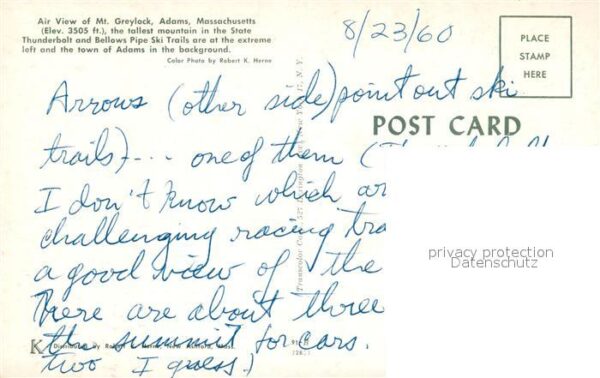 Air View of Mt. Greylock, Adams, Massachusetts
(Elev. 3505 ft.), the tallest mountain in the State
Thunderbolt and Bellows Pipe Ski Trails are at the extreme
left and the town of Adams in the background.
Color Photo by Robert K. Herne
8/23/60
PLACE
STAMP
HERE
POST CARD
Arrows (other side) point out ski
trails)--- one of them (
I don't know which ar
challenging racing tra
a good view of the
There are about three
the summit for cars.
two I guess.)
privacy protection
Datenschutz
K Distributed by Robert